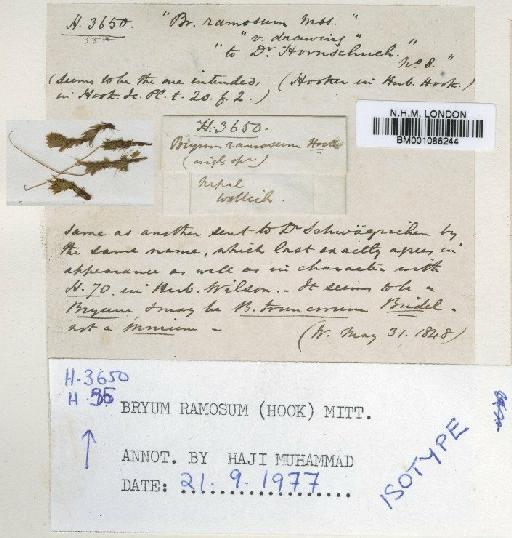 H. 3650.
"Br. ramosum mss."
"v. drawing"
"to Dr. Hornschuch."
No 8."
(seems to be the one intended,
in Hook Ic. Pl. t. 20. f. 2.)
(Hooker in Herb. Hook.)
N.H.M. LONDON
BM001086244
H. 3650.
Bryum ramosum Hook
Nepal
Wallich.
same as another sent to Dr Schwägrichen by
the same name, which last exactly agrees in
appearance as well as in character with
H. 70. in Herb. Wilson. - It seems to be a
Bryum & may be B. truncorum Bridel -
not a Mnium -
(W. May 31. 1848)
H. 3650
H.
BRYUM RAMOSUM (HOOK) MITT.
ANNOT. BY HAJI MUHAMMAD
DATE: 21. 9. 1977
ISOTYPE